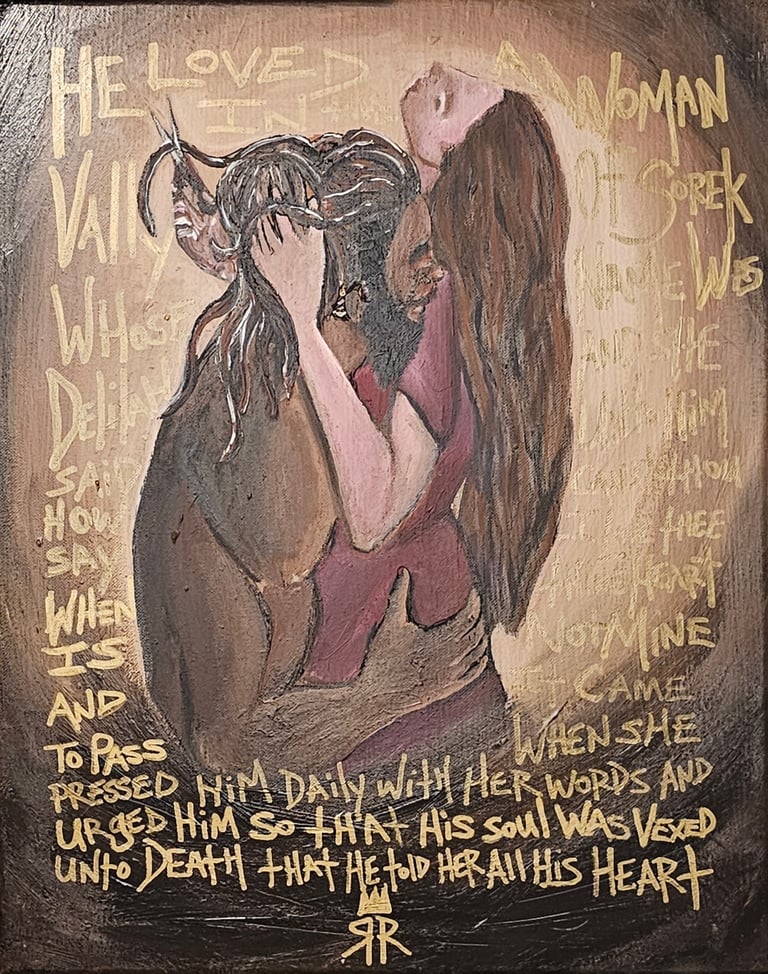 HE LOVED A WOMAN
IN THE
VAlly Of SOREK
WHOSE NAME WAS
DEliLAH AND SHE
SAID HIM
HOW CANST THOU
SAY THEE
WHEN HEART
IS NOT MINE
AND IT CAME
TO PASS WHEN SHE
PRESSED HiM DAily WiTH HER WORDS AND
URgED HiM SO tHAt HiS SOUl WAS VEXED
UNto DEAtH tHAt HE tolD HER All HiS HEARt
RR